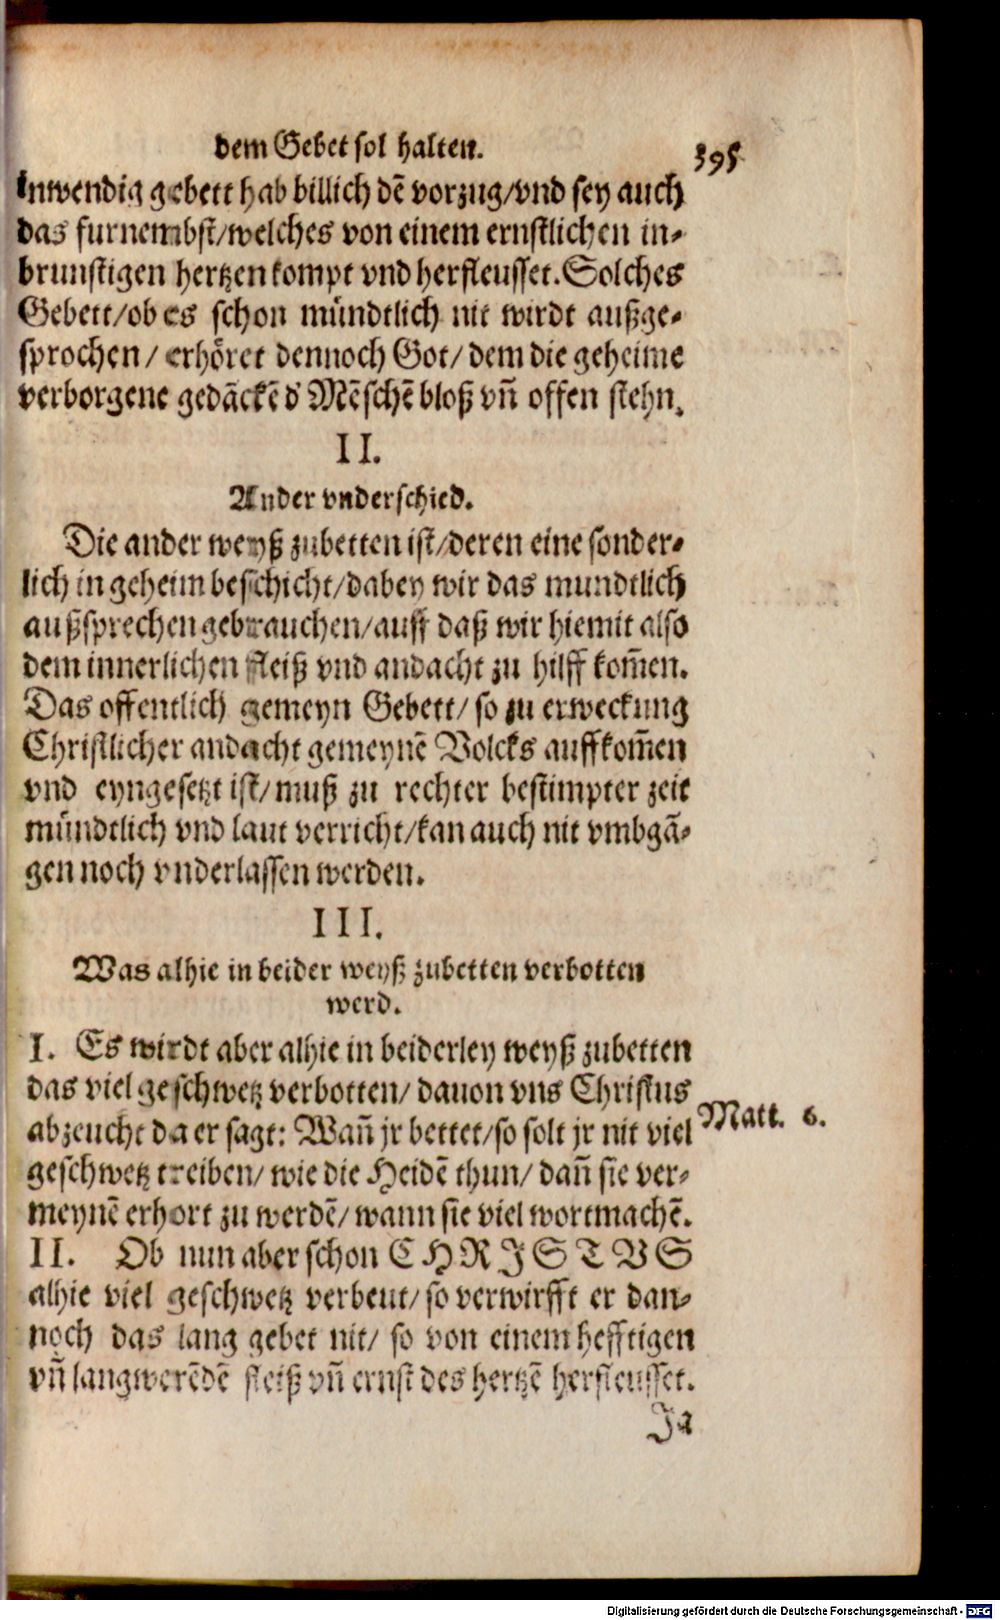 dem Gebet sol halten.
395
inwendig gebett hab billich dẽ vorzug/vnd sey auch
das furnembst/welches von einem ernstlichen in-
brunstigen hertzen kompt vnd herfleusset. Solches
Gebett/ob es schon mündtlich nit wirdt außge-
sprochen/ erhöret dennoch Got/ dem die geheime
verborgene gedãckẽ d' Mẽschẽ bloß vñ offen stehn.
II.
Ander vnderschied.
Die ander weyß zubetten ist/deren eine sonder-
lich in geheim beschicht/dabey wir das mundtlich
außsprechen gebrauchen/auff daß wir hiemit also
dem innerlichen fleiß vnd andacht zu hilff kom̃en.
Das offentlich gemeyn Gebett/ so zu erweckung
Christlicher andacht gemeynẽ Volcks auffkom̃en
vnd eyngesetzt ist/muß zu rechter bestimpter zeit
mündtlich vnd laut verricht/kan auch nit vmbgã-
gen noch vnderlassen werden.
III.
Was alhie in beider weyß zubetten verbotten
werd.
I. Es wirdt aber alhie in beiderley weyß zubetten
das viel geschwetz verbotten/ dauon vns Christus
abzeucht da er sagt: Wañ jr bettet/so solt jr nit viel
Matt. 6.
geschwetz treiben/ wie die Heidẽ thun/ dañ sie ver-
meynẽ erhort zu werdẽ/ wann sie viel wort machẽ.
II. Ob nun aber schon CHRISTVS
alhie viel geschwetz verbeut/ so verwirfft er dan-
noch das lang gebet nit/ so von einem hefftigen
vñ langwerẽdẽ fleiß vñ ernst des hertzẽ herfleusset.
Ja
Digitalisierung gefördert durch die Deutsche Forschungsgemeinschaft - DFG